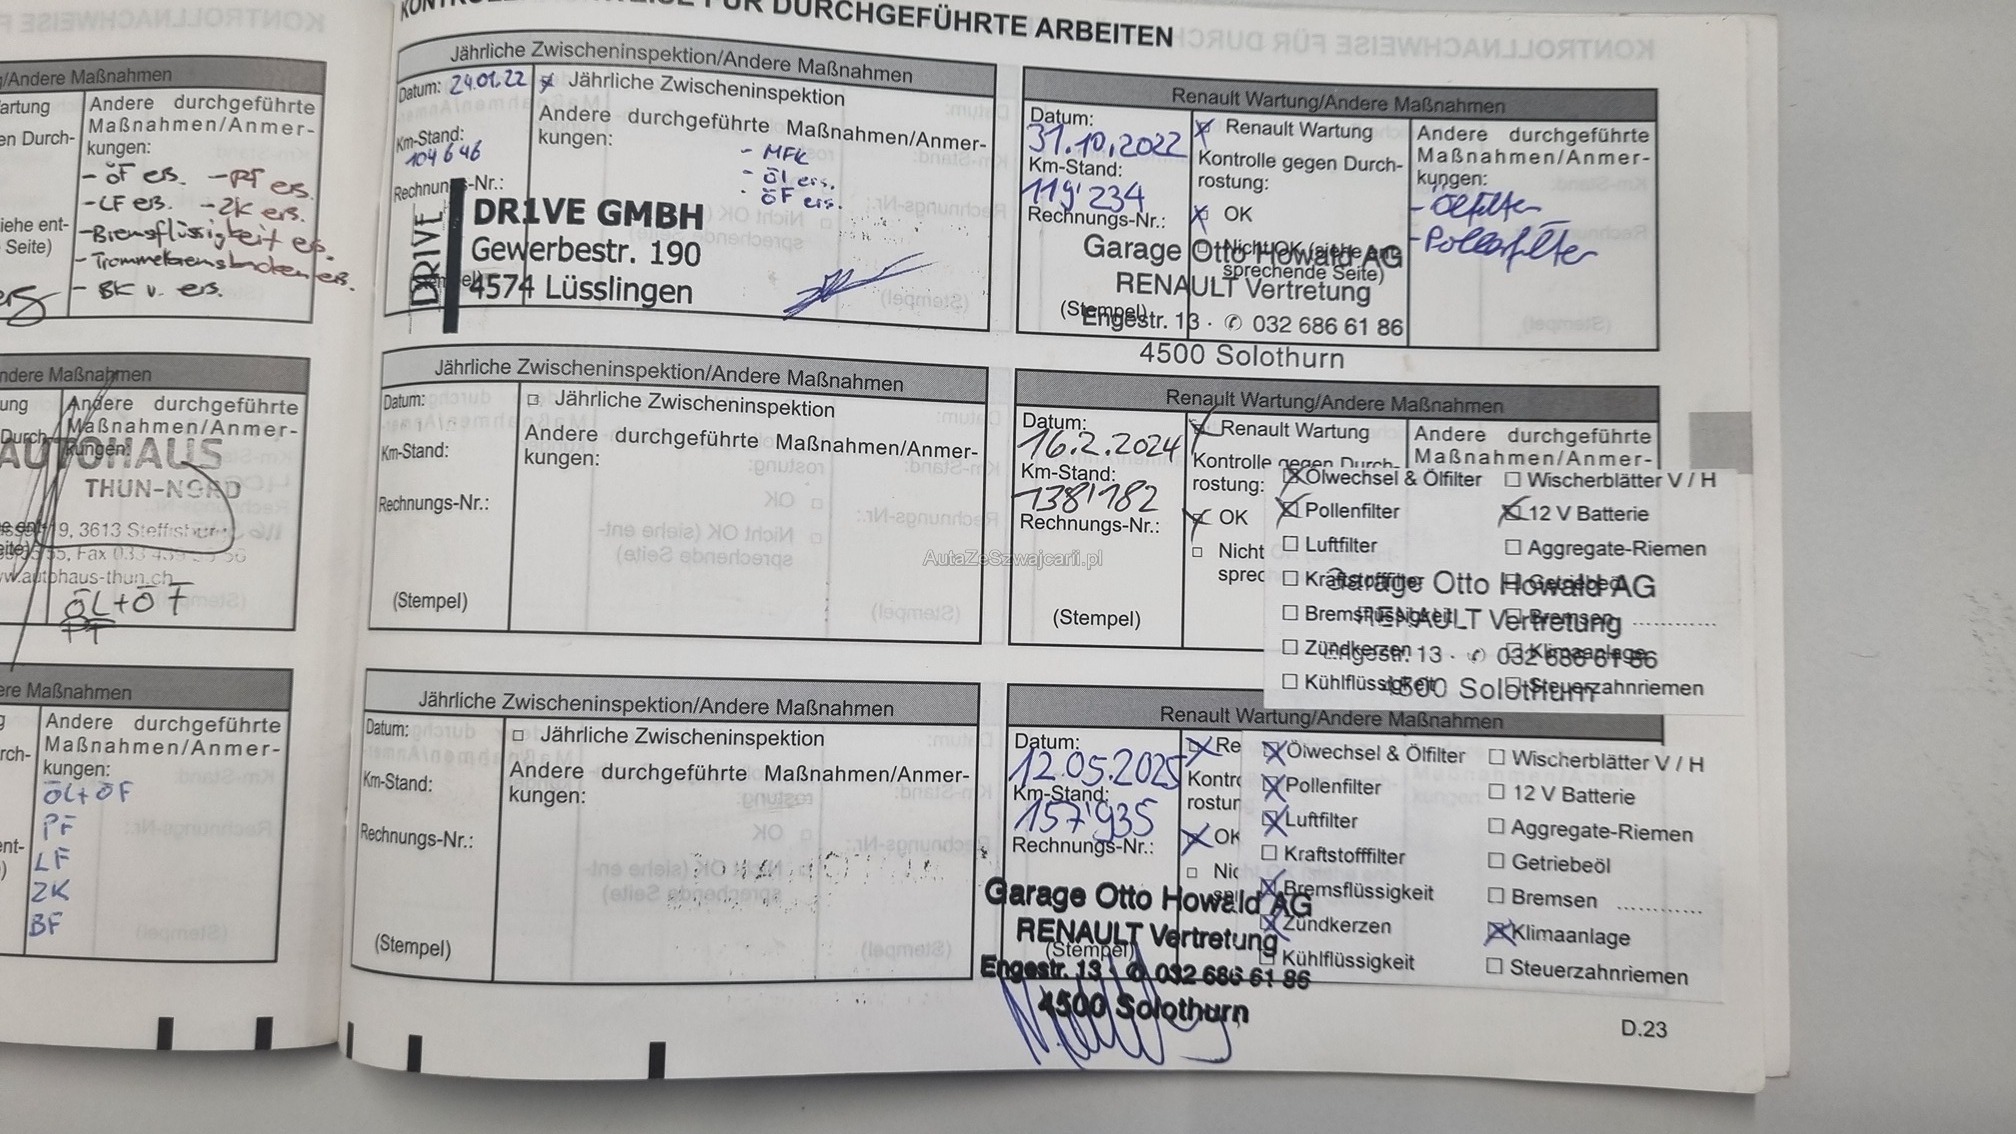 KONTROLLNACHWEISE FÜR DURCHGEFÜHRTE ARBEITEN
/Andere Maßnahmen
artung
en Durch-
iehe ent-
Seite)
Andere durchgeführte
Maßnahmen/Anmer-
kungen:
- ÖF ers. - PF ers.
- LF ers. - ZK ers.
- Bremsflüssigkeit ers.
- Trommelbremsbacken ers.
- BK v. ers.
ndere Maßnahmen
ung
Durch
Andere durchgeführte
Maßnahmen/Anmer-
kungen:
AUTOHAUS
THUN-NORD
9, 3613 Steffisburg
Fax 033 439 55 56
w.autohaus-thun.ch
ÖL+ÖF
PF
ere Maßnahmen
g
rch-
ent-
)
Andere durchgeführte
Maßnahmen/Anmer-
kungen:
ÖL+ÖF
PF
LF
ZK
BF
Jährliche Zwischeninspektion/Andere Maßnahmen
Datum: 24.01.22
Jährliche Zwischeninspektion
Km-Stand:
104646
Andere durchgeführte Maßnahmen/Anmer-
kungen:
- MFK
- Öl ers.
- ÖF ers.
Rechnungs-Nr.:
DRIVE
DR1VE GMBH
Gewerbestr. 190
4574 Lüsslingen
Renault Wartung/Andere Maßnahmen
Datum:
31.10.2022
Km-Stand:
119'234
Rechnungs-Nr.:
(Stempel)
Renault Wartung
Kontrolle gegen Durch-
rostung:
OK
Nicht OK (siehe ent-
sprechende Seite)
Andere durchgeführte
Maßnahmen/Anmer-
kungen:
- Ölfilter
- Pollenfilter
Garage Otto Howald AG
RENAULT Vertretung
Engestr. 13 · ✆ 032 686 61 86
4500 Solothurn
Jährliche Zwischeninspektion/Andere Maßnahmen
Datum:
Km-Stand:
Rechnungs-Nr.:
(Stempel)
Jährliche Zwischeninspektion
Andere durchgeführte Maßnahmen/Anmer-
kungen:
Renault Wartung/Andere Maßnahmen
Datum:
16.2.2024
Km-Stand:
138'182
Rechnungs-Nr.:
(Stempel)
Renault Wartung
Kontrolle gegen Durch-
rostung:
OK
Nicht
sprec
Andere durchgeführte
Maßnahmen/Anmer-
Ölwechsel & Ölfilter
Pollenfilter
Luftfilter
Kraftstofffilter
Bremsflüssigkeit
Zündkerzen
Kühlflüssigkeit
Wischerblätter V / H
12 V Batterie
Aggregate-Riemen
Getriebeöl
Bremsen ...............
Klimaanlage
Steuerzahnriemen
Garage Otto Howald AG
RENAULT Vertretung
Engestr. 13 · ✆ 032 686 61 86
4500 Solothurn
AutaZeSzwajcarii.pl
Jährliche Zwischeninspektion/Andere Maßnahmen
Datum:
Km-Stand:
Rechnungs-Nr.:
(Stempel)
Jährliche Zwischeninspektion
Andere durchgeführte Maßnahmen/Anmer-
kungen:
Renault Wartung/Andere Maßnahmen
Datum:
12.05.2025
Km-Stand:
157'935
Rechnungs-Nr.:
(Stempel)
Re
Kontr
rostur
OK
Nic
Ölwechsel & Ölfilter
Pollenfilter
Luftfilter
Kraftstofffilter
Bremsflüssigkeit
Zündkerzen
Kühlflüssigkeit
Wischerblätter V / H
12 V Batterie
Aggregate-Riemen
Getriebeöl
Bremsen ...............
Klimaanlage
Steuerzahnriemen
Garage Otto Howald AG
RENAULT Vertretung
Engestr. 13 · ✆ 032 686 61 86
4500 Solothurn
D.23